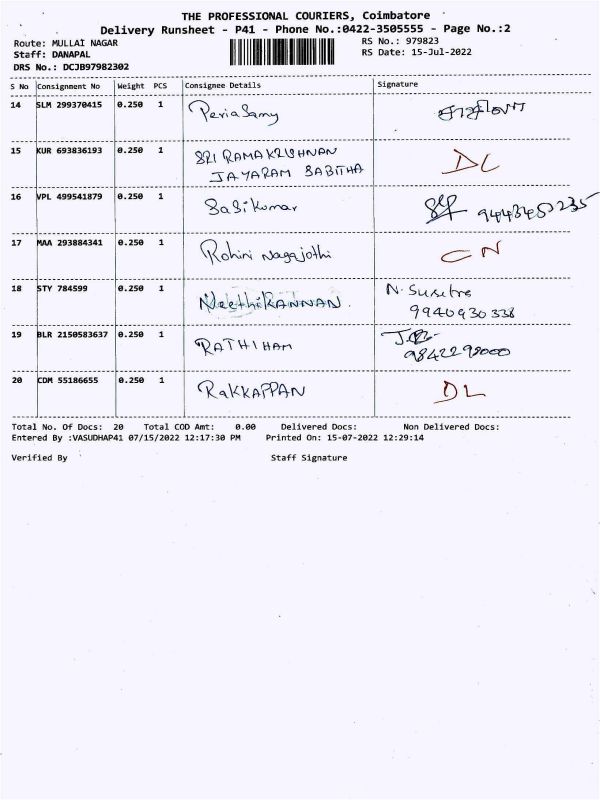 THE PROFESSIONAL COURIERS, Coimbatore
Delivery Runsheet - P41 - Phone No.:0422-3505555 - Page No.:2
Route: MULLAI NAGAR RS No.: 979823
Staff: DANAPAL RS Date: 15-Jul-2022
DRS No.: DCJB97982302
S No Consignment No Weight PCS Consignee Details Signature
14 SLM 299370415 0.250 1 Periasamy
15 KUR 693836193 0.250 1 SRI RAMAKRISHNAN DL
JAYARAM SABITHA
16 VPL 499541879 0.250 1 Sasikumar
17 MAA 293884341 0.250 1 Rohini Nagajothi CN
18 STY 784599 0.250 1 NeethiKANNAN. N. Susitra
9940930338
19 BLR 2150583637 0.250 1 RATHIHAM
9842298000
20 CDM 55186655 0.250 1 RAKKAPPAN DL
Total No. Of Docs: 20 Total COD Amt: 0.00 Delivered Docs: Non Delivered Docs:
Entered By :VASUDHAP41 07/15/2022 12:17:30 PM Printed On: 15-07-2022 12:29:14
Verified By Staff Signature